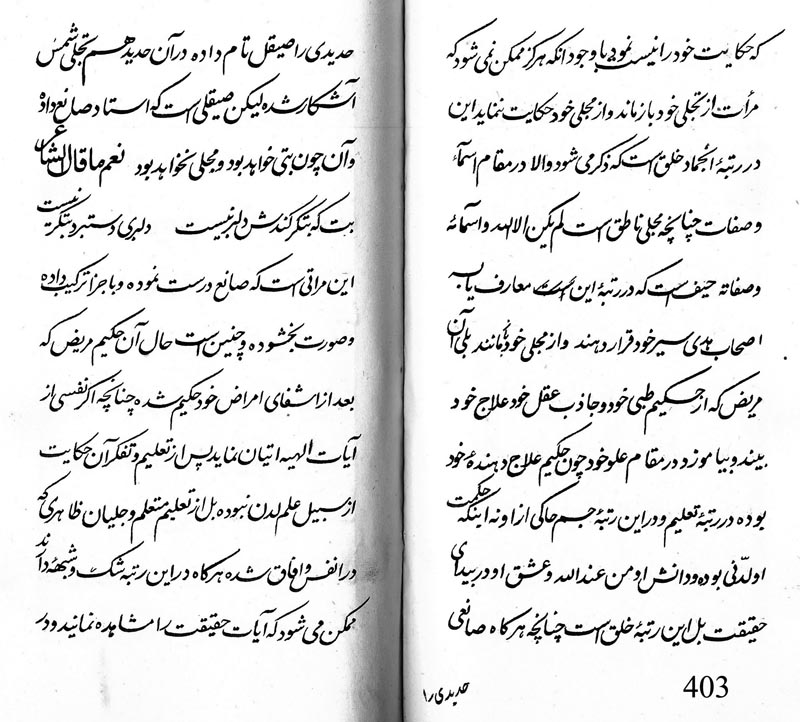 که حکایت خود را نیست نمود با وجود انکه هرکز ممکن نمی شود که
مرآت از تجلی خود باز ماند و از مجلی خود حکایت نماید این
در رتبهٔ انجماد خلق است که ذکر می شود والا در مقام اسمآء
و صفات چنانچه مجلی ناطق است لم یکن الا الله و اسمائه
و صفاته حیف است که در رتبهٔ این است معارف یاب
اصحاب هدی سیر خود قرار دهند و از مجلی خود بمانند بلی آن
مریض که از حکیم طبی خود و جاذب عقل خود علاج خود
بیند و بیاموزد در مقام علو خود چون حکیم علاج دهندهٔ خود
بوده در رتبهٔ تعلیم و در این رتبهٔ جسم حاکی از او نه اینکه حکمت
او لدنی بوده و دانش او من عند الله و عشق او در بیدای
حقیقت بل این رتبهٔ خلق است چنانچه هر کاه صانعی
حدیدی را
403
حدیدی را صیقل تام داده در آن حدید هم تجلی شمس
آشکار شده لیکن صیقلی است که استاد صانع داده
و آن چون بتی خواهد بود و مجلی نخواهد بود نعم ما قال الشاعر
بت که بتکر کندش دلبر نیست دلبری دستبرد بتکر نیست
این مراتی است که صانع درست نموده و با جزا ترکیب داده
و صورت بخشوده و چنین است حال آن حکیم مریض که
بعد از اشفای امراض خود حکیم شده چنانچه اکر نفسی از
آیات الهیه اتیان نماید پس از تعلیم و تفکر آن حکایت
از سبیل علم لدن نبوده بل از تعلیم متعلم و جلیان ظاهری که
در انفس و افاق شده هر کاه در این رتبه شک و شبههٔ دارند
ممکن می شود که آیات حقیقت را مشاهده نمایند و در